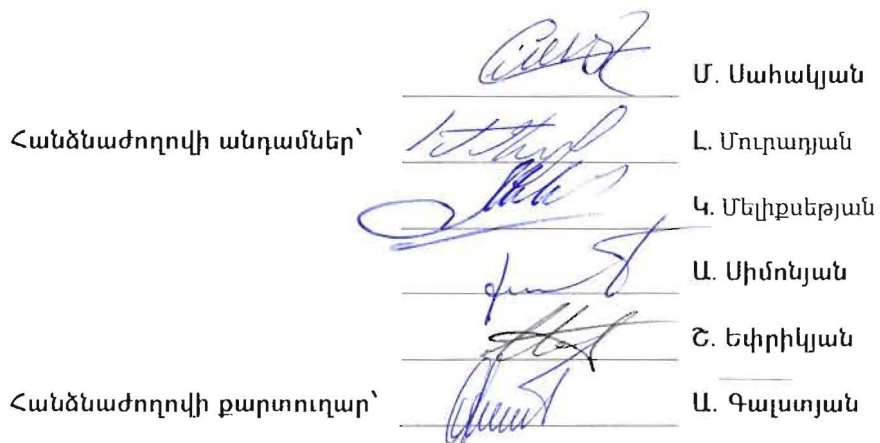 Մ. Սահակյան
Հանձնաժողովի անդամներ՝ Լ. Մուրադյան
Կ. Մելիքսեթյան
Ա. Սիմոնյան
Շ. Եփրիկյան
Հանձնաժողովի քարտուղար՝ Ա. Գալստյան